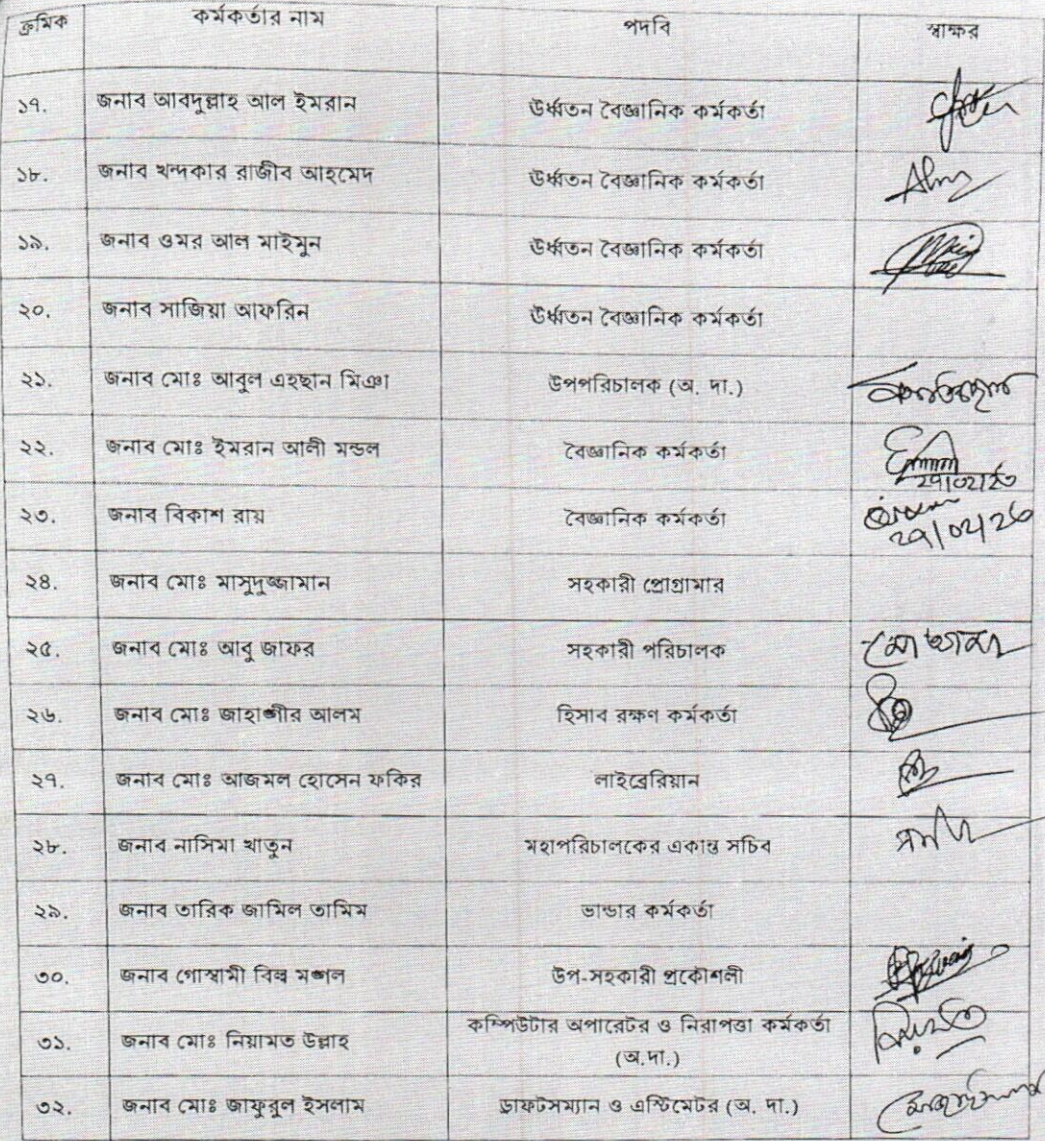 ক্রমিক কর্মকর্তার নাম পদবি স্বাক্ষর
১৭. জনাব আবদুল্লাহ আল ইমরান উর্ধ্বতন বৈজ্ঞানিক কর্মকর্তা
১৮. জনাব খন্দকার রাজীব আহমেদ উর্ধ্বতন বৈজ্ঞানিক কর্মকর্তা
১৯. জনাব ওমর আল মাইমুন উর্ধ্বতন বৈজ্ঞানিক কর্মকর্তা
২০. জনাব সাজিয়া আফরিন উর্ধ্বতন বৈজ্ঞানিক কর্মকর্তা
২১. জনাব মোঃ আবুল এহছান মিঞা উপপরিচালক (অ. দা.)
২২. জনাব মোঃ ইমরান আলী মন্ডল বৈজ্ঞানিক কর্মকর্তা
২৩. জনাব বিকাশ রায় বৈজ্ঞানিক কর্মকর্তা
২৪. জনাব মোঃ মাসুদুজ্জামান সহকারী প্রোগ্রামার
২৫. জনাব মোঃ আবু জাফর সহকারী পরিচালক
২৬. জনাব মোঃ জাহাঙ্গীর আলম হিসাব রক্ষণ কর্মকর্তা
২৭. জনাব মোঃ আজমল হোসেন ফকির লাইব্রেরিয়ান
২৮. জনাব নাসিমা খাতুন মহাপরিচালকের একান্ত সচিব
২৯. জনাব তারিক জামিল তামিম ভান্ডার কর্মকর্তা
৩০. জনাব গোস্বামী বিল্ব মঙ্গল উপ-সহকারী প্রকৌশলী
৩১. জনাব মোঃ নিয়ামত উল্লাহ কম্পিউটার অপারেটর ও নিরাপত্তা কর্মকর্তা
(অ.দা.)
৩২. জনাব মোঃ জাফুরুল ইসলাম ড্রাফটসম্যান ও এস্টিমেটর (অ. দা.)